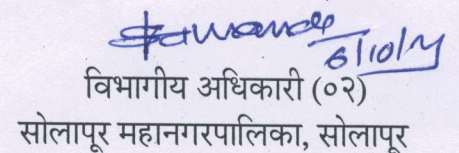 6/10/14
विभागीय अधिकारी (०२)
सोलापूर महानगरपालिका, सोलापूर